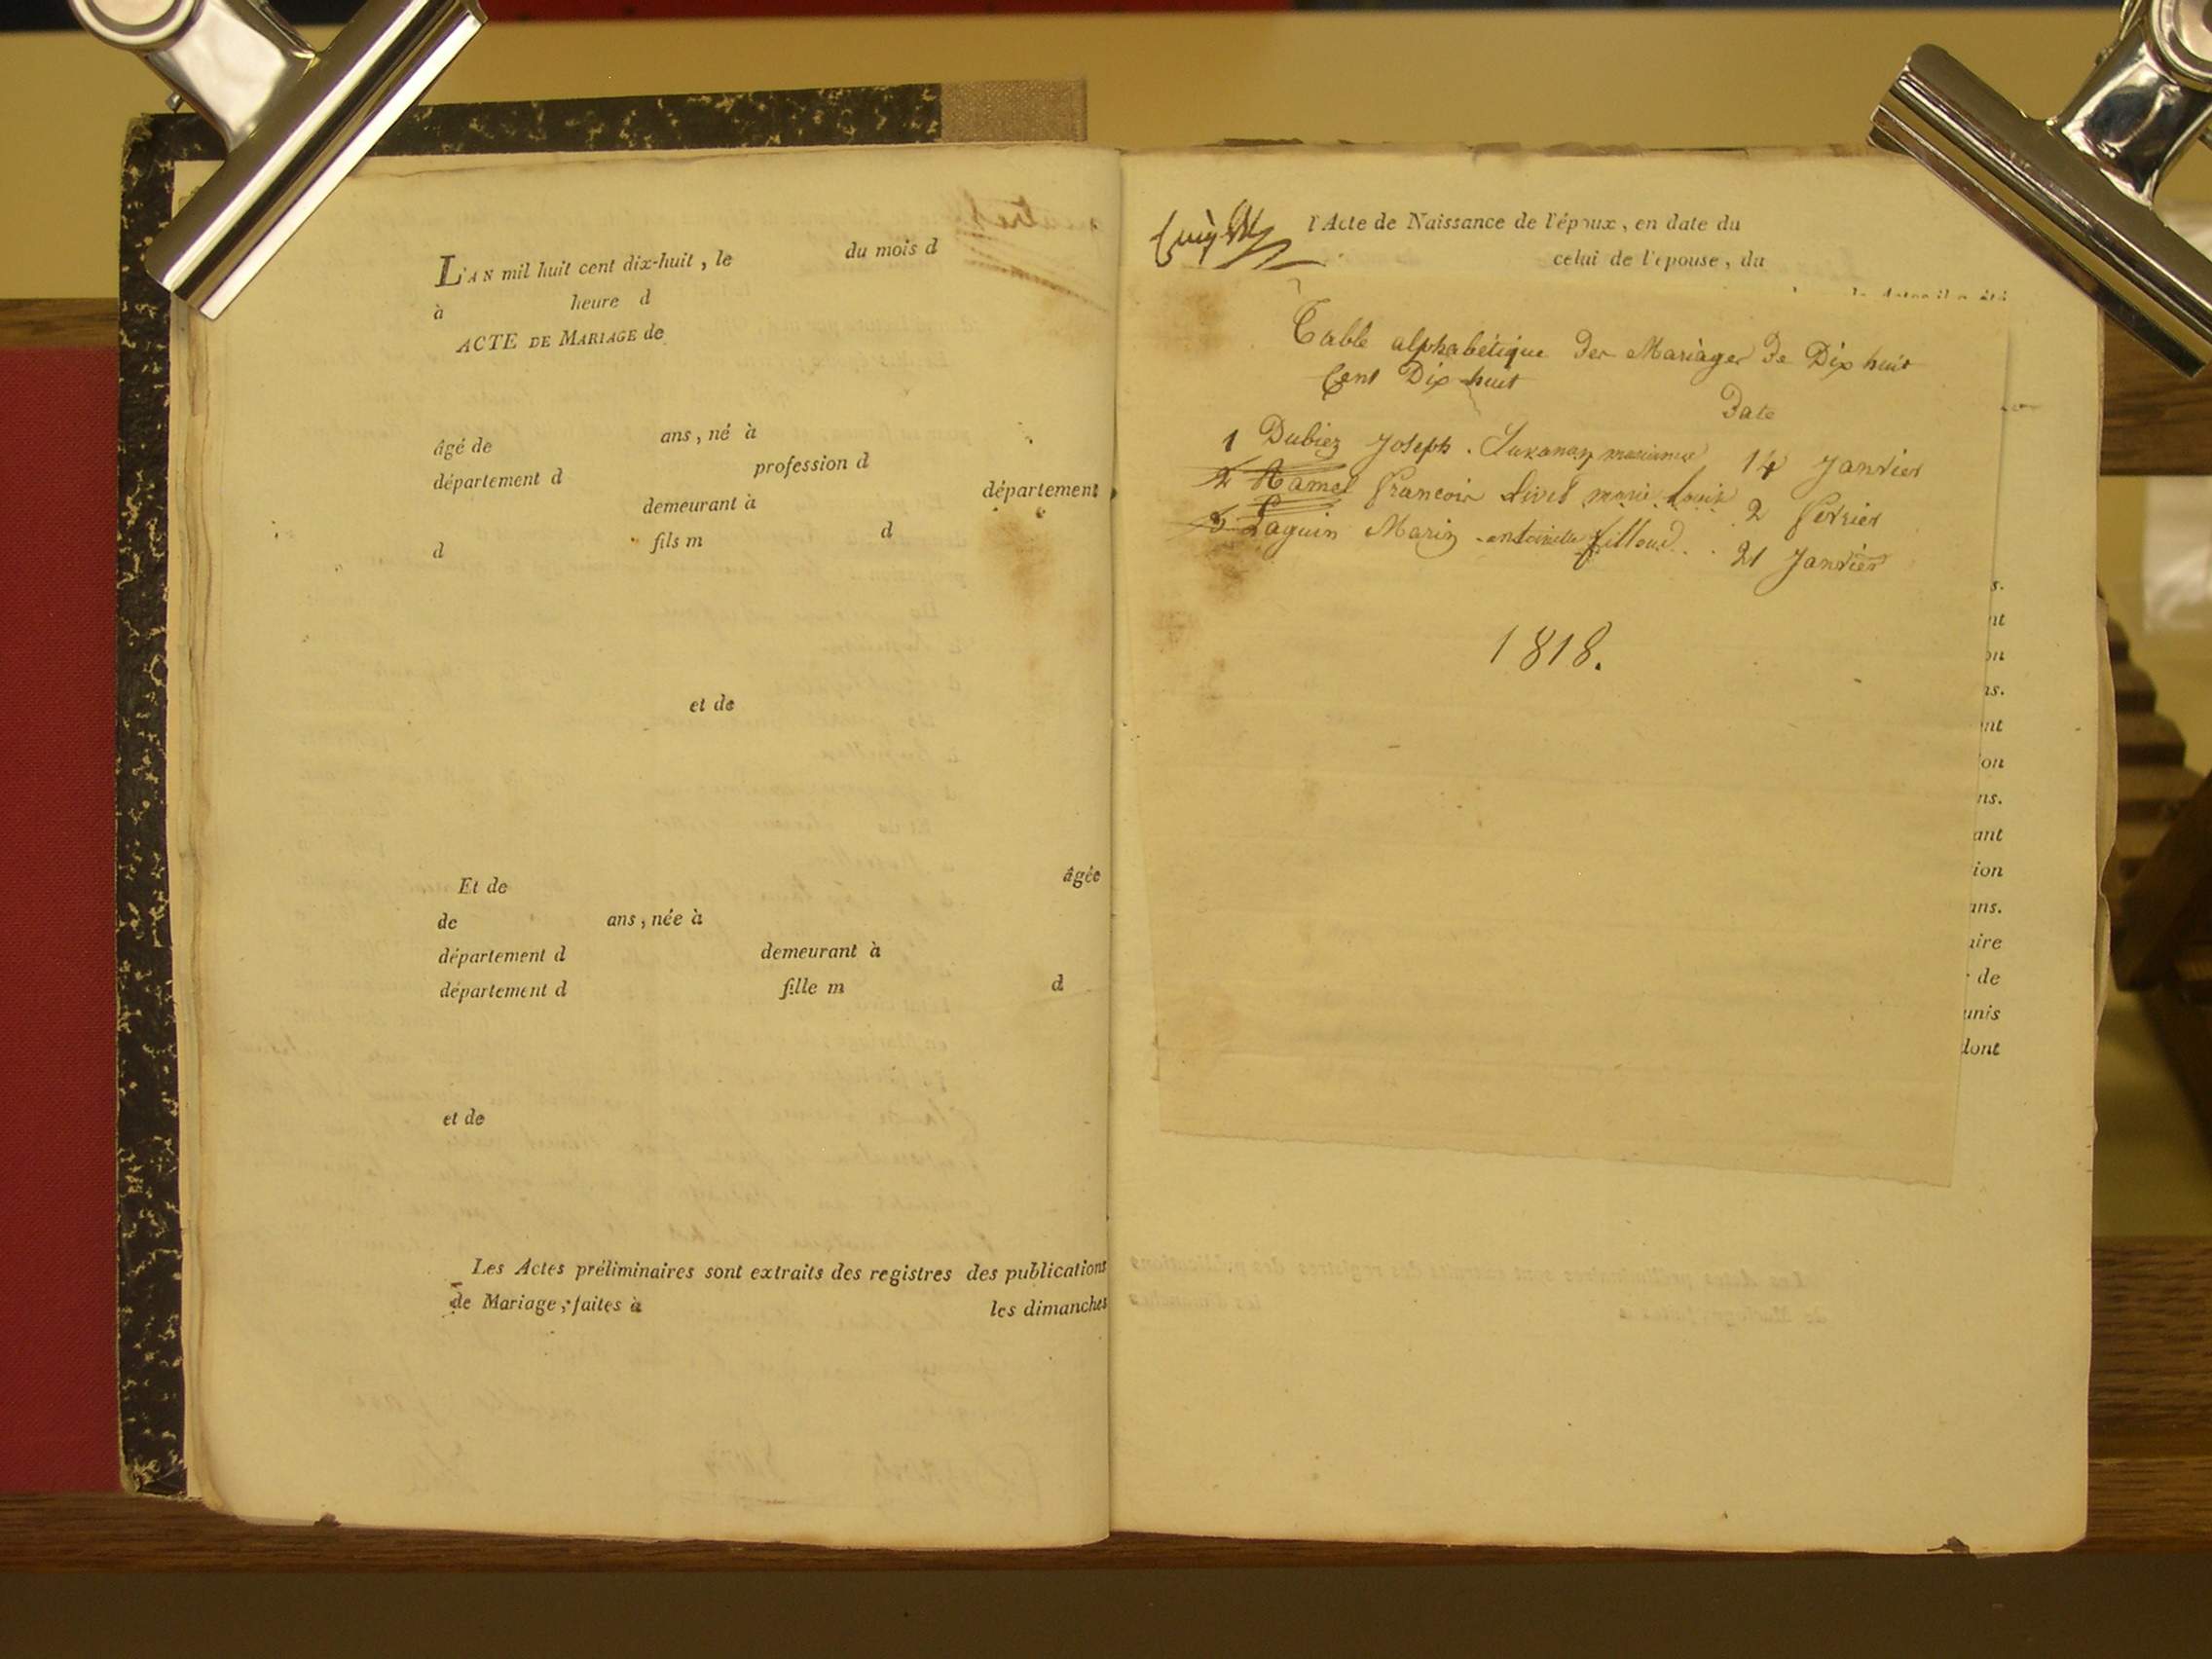 L'AN mil huit cent dix-huit, le du mois d
à heure d
ACTE DE MARIAGE de
âgé de ans, né à
département d profession d
demeurant à département
d fils m d
et de
Et de âgée
de ans, née à
département d demeurant à
département d fille m d
et de
Les Actes préliminaires sont extraits des registres des publications
de Mariage, faites à les dimanches
l'Acte de Naissance de l'époux, en date du
celui de l'épouse, du
Table alphabétique des Mariages de Dix huit
Cent Dix huit
Date
1 Dubiez Joseph 14 Janvier
2 Hamel francois Livet marie Louise 2 fevrier
3 Laguin Marin antoinette filloud 21 Janvier
1818.
s.
nt
on
ns.
nt
on
ns.
ant
ion
ans.
aire
de
unis
dont